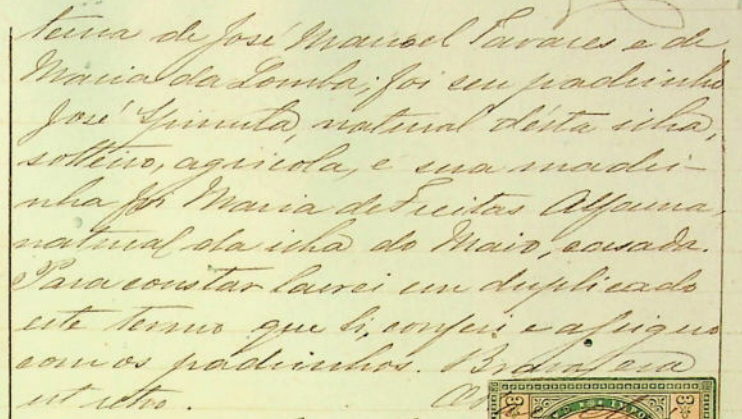 terna de José Manoel Tavares e de
Maria da Lomba; foi seu padrinho
José Spinula, natural désta ilha,
solteiro, agricola, e sua madri-
nha foi Maria de Freitas
natural da ilha do Maio, casada.
Para constar lavrei em duplicado
este termo que li, conferi e assigno
com os padrinhos. Brava, era
ut retro.